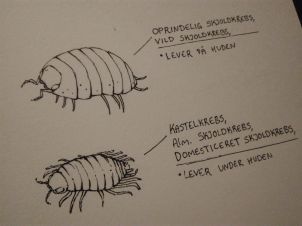 OPRINDELIG SKJOLDKREBS,
VILD SKJOLDKREBS,
• LEVER PÅ HUDEN
KASTELKREBS,
ALM. SKJOLDKREBS,
DOMESTICERET SKJOLDKREBS,
• LEVER UNDER HUDEN